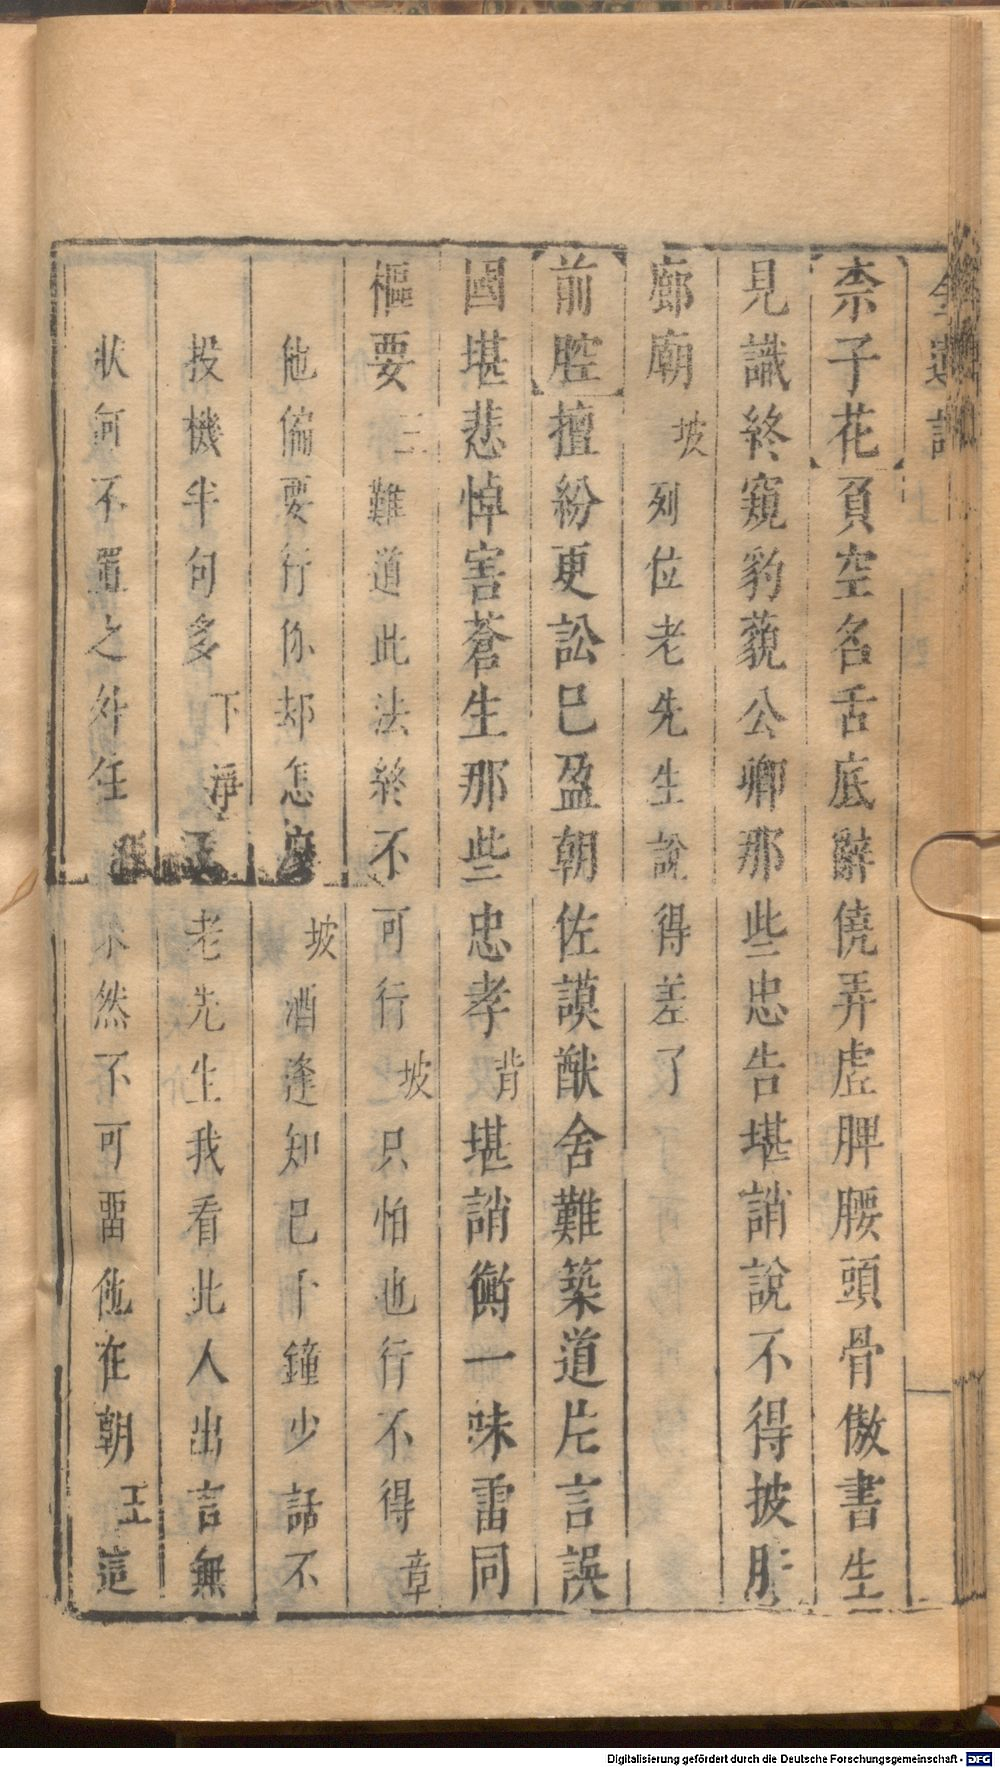 金蓮記
柰子花負空名舌底辭僥弄虛脾腰頭骨傲書生
見識終窺豹藐公卿那些忠告堪誚說不得披肝
廊廟坡列位老先生說得差了
前腔擅紛更訟已盈朝佐謨猷舍難築道片言誤
國堪悲悼害蒼生那些忠孝背堪誚衡一味雷同
樞要二難道此法終不可行坡只怕也行不得章
他偏要行你却怎麼坡酒逢知己千鐘少話不
投機半句多下淨王老先生我看此人出言無
狀何不置之外任不然不可畱他在朝王這
Digitalisierung gefördert durch die Deutsche Forschungsgemeinschaft - DFG